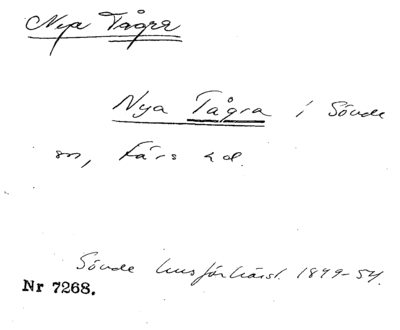 Nya Tågra
Nya Tågra i Sövde
sn, Färs hd.
Sövde husförhörsl. 1849-54.
Nr 7268.